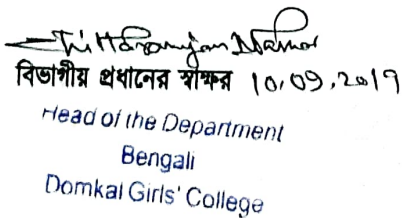 বিভাগীয় প্রধানের স্বাক্ষর 10.09.2019
Head of the Department
Bengali
Domkal Girls' College